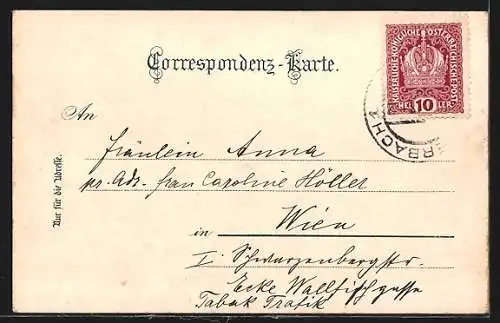 Correspondenz-Karte.
KAISERLICHE KÖNIGLICHE ÖSTERREICHISCHE POST
HEL 10 LER
ERBACH
An
Fräulein Anna
pr. Adr. frau Caroline Höller
in Wien
I. Schwarzenbergstr.
Ecke Wallfischgasse
Tabak Trafik
Nur für die Adresse.